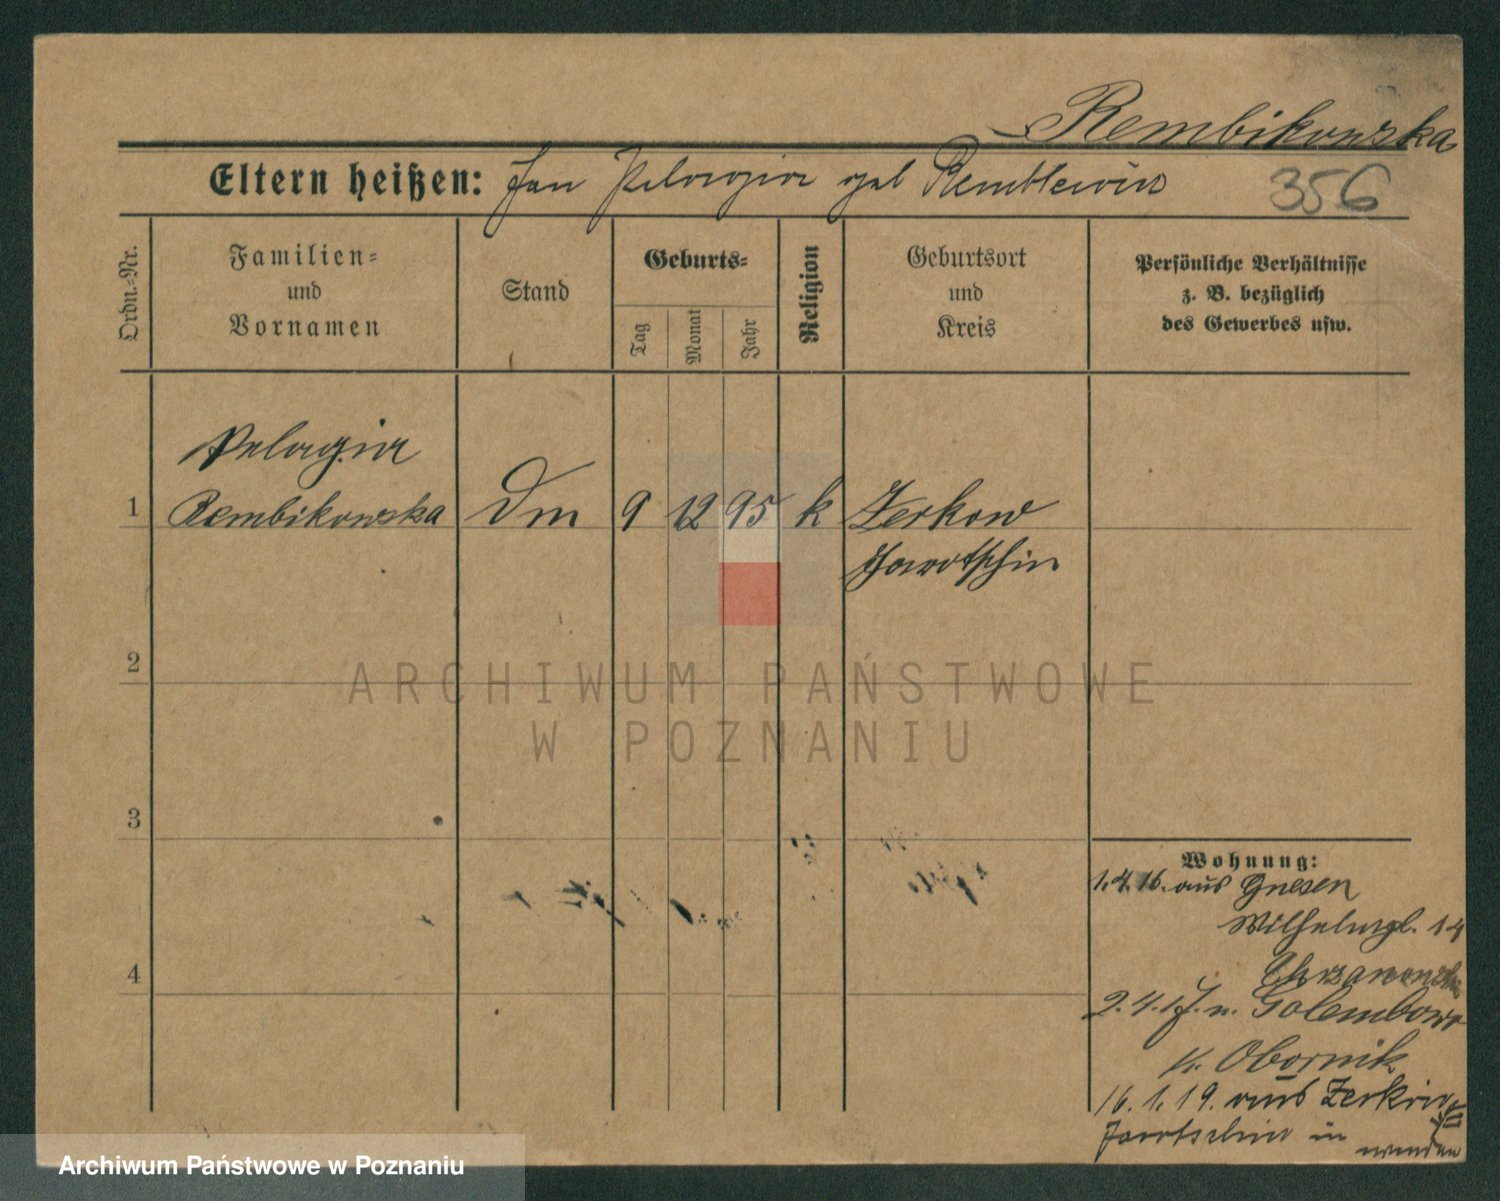 Rembikowska
Eltern heißen: Jan Pelagia geb Remblewicz
356
Ordn.-Nr.
Familien- und Vornamen
Stand
Geburts-
Tag
Monat
Jahr
Religion
Geburtsort und Kreis
Persönliche Verhältnisse
z. B. bezüglich
des Gewerbes usw.
Pelagia
1 Rembikowska Dm 9 12 95 k Zerkow
Jarotschin
2
ARCHIWUM PAŃSTWOWE
W POZNANIU
3
Wohnung:
1.4.16. aus Gnesen
Wilhelmspl. 14
2.4.17. n. Golembowo
Kr. Obornik
16.1.19. aus Zerkow
Jarotschin in
wenden
4
Archiwum Państwowe w Poznaniu